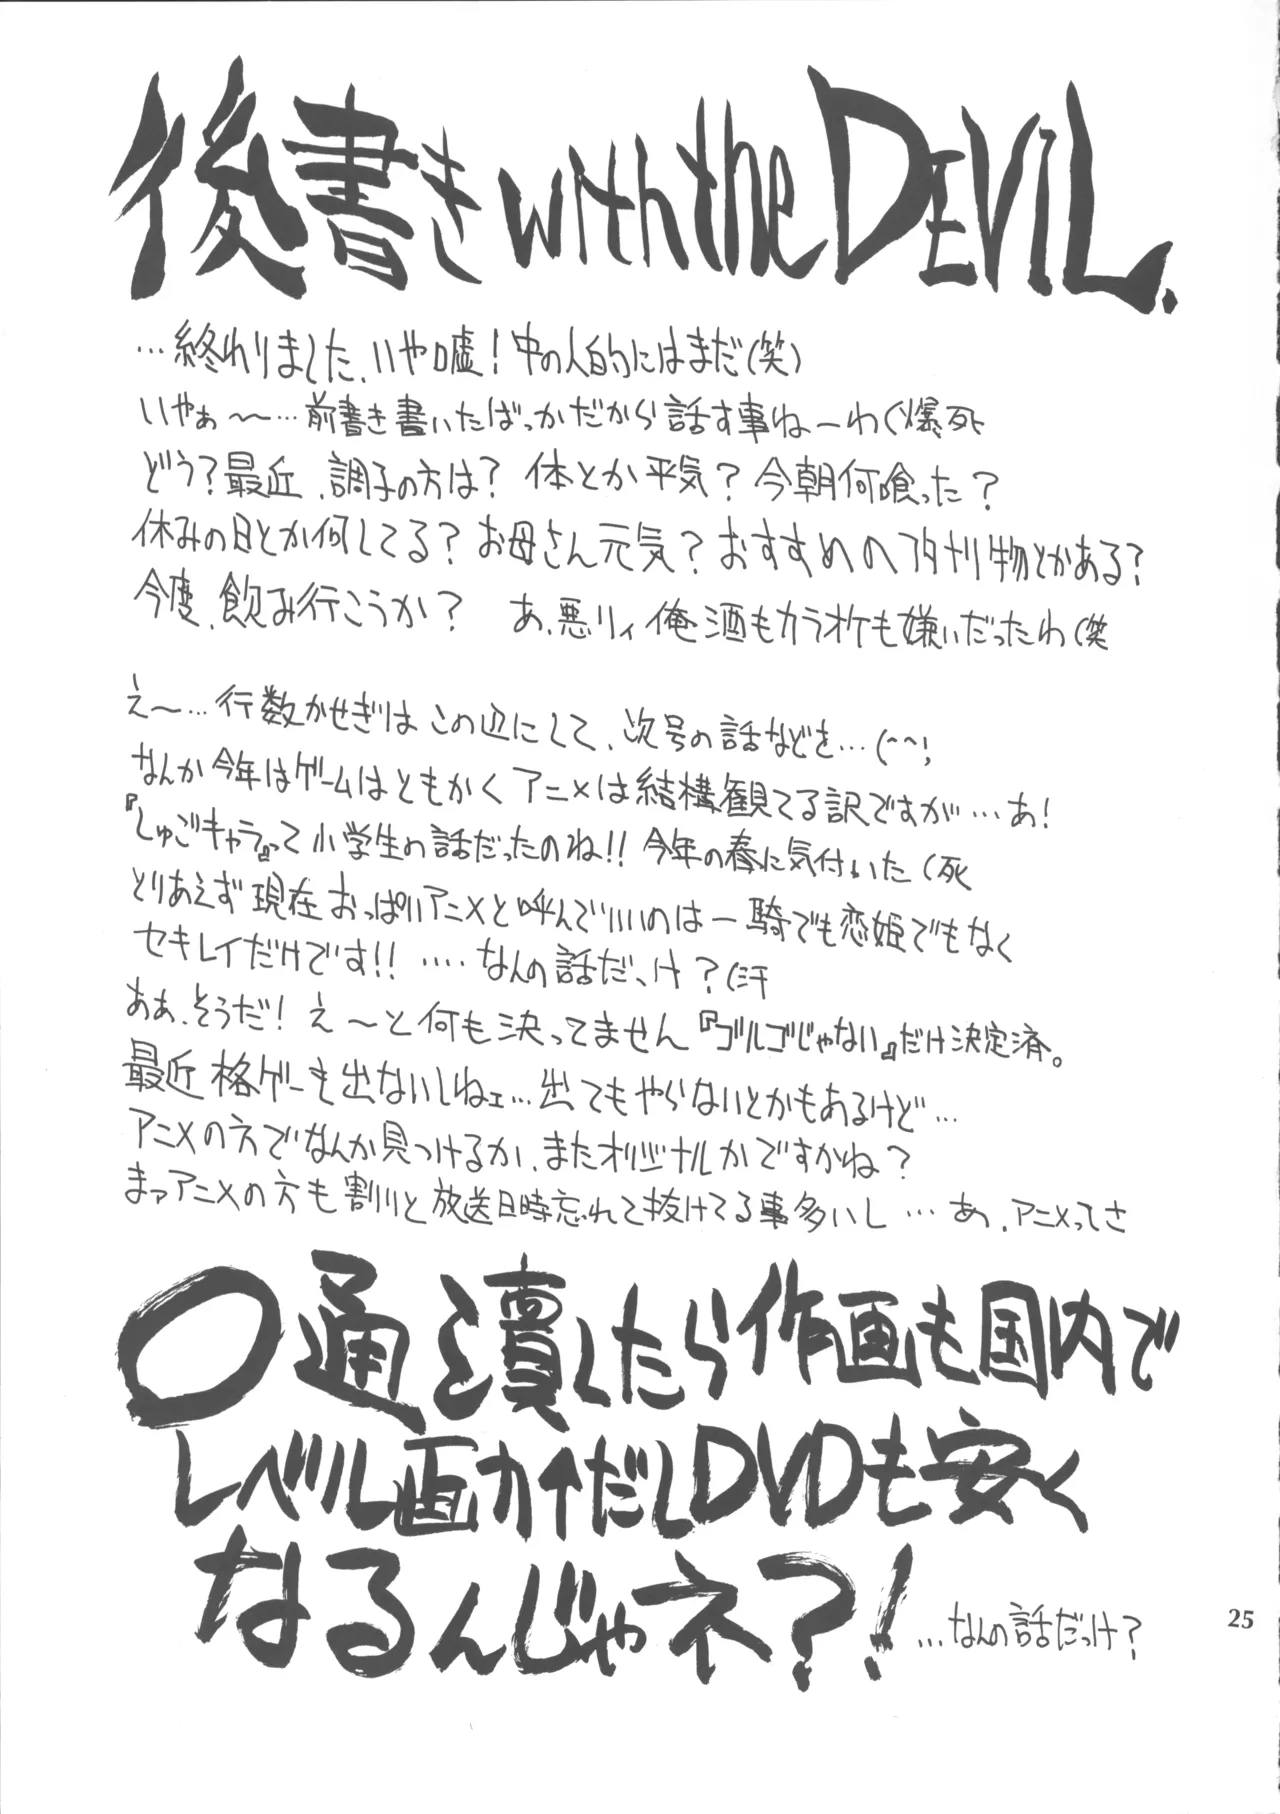 後書き with the DEVIL.
…終わりました、いや嘘！中の人的にはまだ(笑)
いやぁ〜…前書き書いたばっかだから話す事ねーわ(爆死
どう？最近、調子の方は？体とか平気？今朝何喰った？
休みの日とか何してる？お母さん元気？おすすめの刊物とかある？
今度、飲み行こうか？あ、悪リィ俺酒もカラオケも嫌いだったわ(笑
え〜…行数かせぎはこの辺にして、次号の話などを…(^^;
なんか今年はゲームはともかくアニメは結構観てる訳ですが…あ！
『しゅごキャラ』って小学生の話だったのね!!今年の春に気付いた(死
とりあえず現在おっぱいアニメと呼んでいいのは一騎でも恋姫でもなく
セキレイだけです!!‥‥なんの話だっけ？(汗
ああ、そうだ！え〜と何も決ってません『ゴルゴじゃない』だけ決定済。
最近格ゲーも出ないしねェ…出てもやらないとかもあるけど…
アニメの方でなんか見つけるか、またオリジナルかですかね？
まァアニメの方も割りと放送日時忘れて抜けてる事多いし…あ、アニメってさ
〇通を潰したら作画も国内で
レベル画力↑だしDVDも安く
なるんじゃネ？！…なんの話だっけ？
25